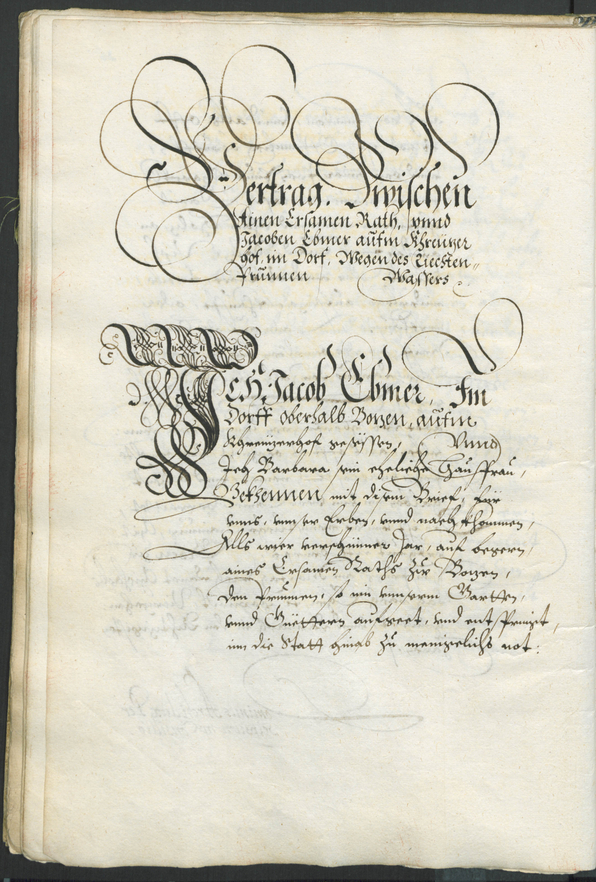 Vertrag. Zwischen
Ainen Ersamen Rath, vnnd
Jacoben Ebmer aufm Khreutzer
hof, im Dorf, Wegen des Liechten-
Prunnen Wassers.
ICH Jacob Ebmer, Im
Dorff oberhalb Bozen, aufm
Khreuzerhof gesessen, Vnnd
Ich Barbara sein eheliche Hausfrau,
Bekhennen mit disem Brief, für
vnns, vnnser Erben, vnnd nachkhommen,
Alls wier verschinner Jar, auf begern
aines Ersamen Raths zu Bozen,
den Prunnen, so in vnnserm Gartten,
vnnd Güettern aufgeet, vnd entspringt,
inn die Statt hinab zu menigelichs not-